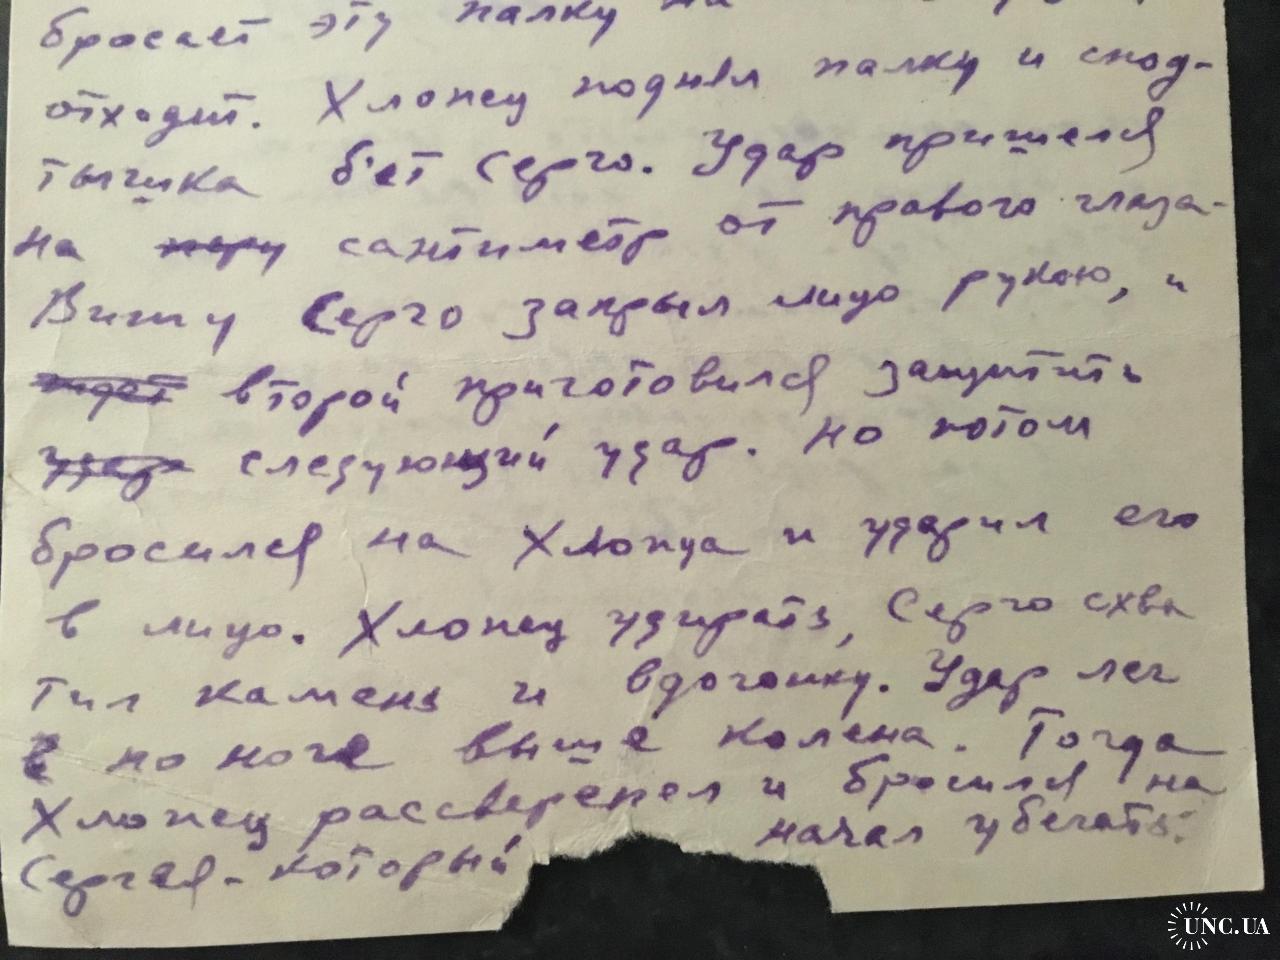 бросает эту палку на
отходит. Хлопец поднял палку и спод-
тышка бьет Серго. Удар пришелся
на сантиметр от правого глаза.
Вижу Серго закрыл лицо рукою, и
второй приготовился защитить
следующий удар. Но потом
бросился на Хлопца и ударил его
в лицо. Хлопец удирать, Серго схва
тил камень и вдогонку. Удар лег
по ноге выше колена. Тогда
Хлопец рассверепел и бросился на
Сергея - который начал убегать.
UNC.UA